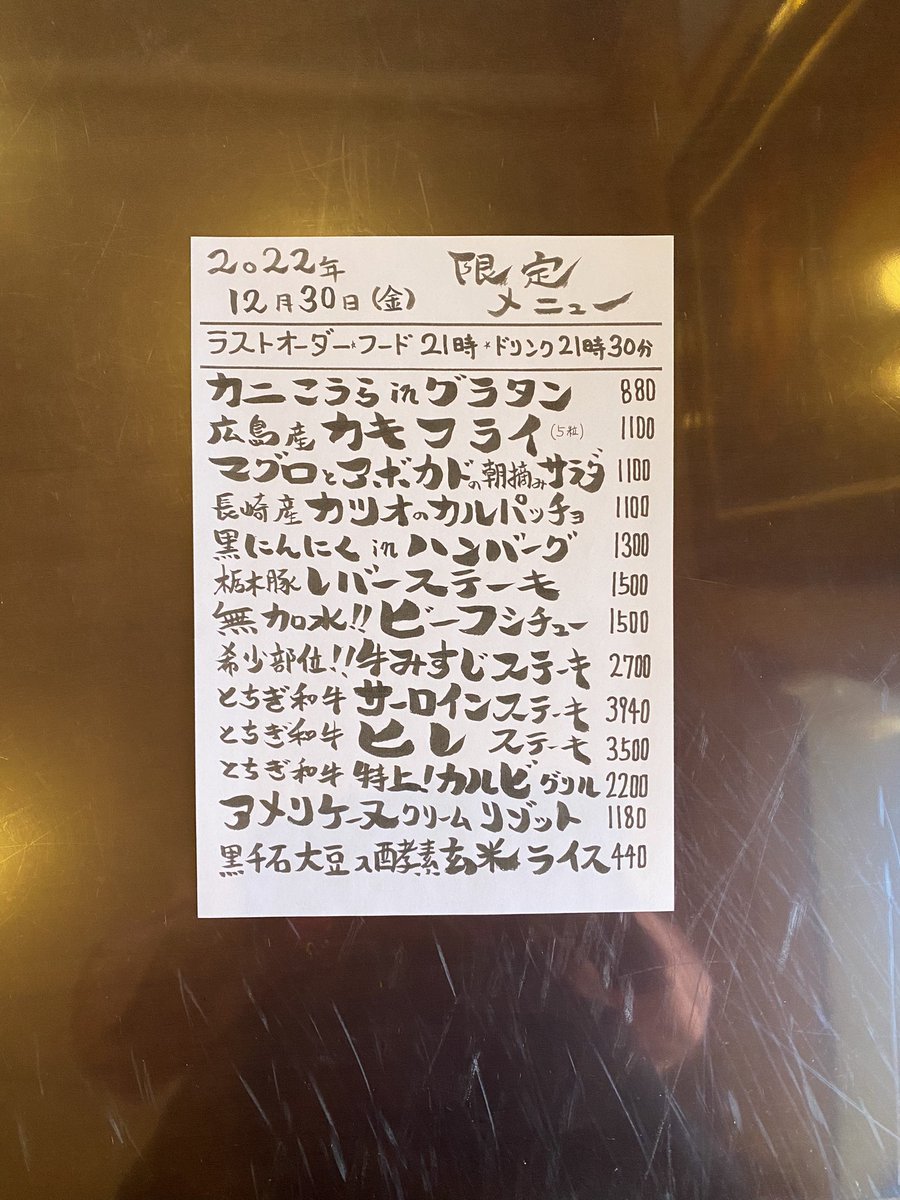 2022年 限定
12月30日(金) メニュー
ラストオーダー*フード 21時 * ドリンク21時30分
カニこうら in グラタン 880
広島産 カキフライ (5粒) 1100
マグロとアボカドの朝摘みサラダ 1100
長崎産 カツオのカルパッチョ 1100
黒にんにく in ハンバーグ 1300
栃木豚 レバーステーキ 1500
無加水!! ビーフシチュー 1500
希少部位!! 牛みすじステーキ 2700
とちぎ和牛 サーロインステーキ 3940
とちぎ和牛 ヒレ ステーキ 3500
とちぎ和牛 特上!カルビグリル 2200
アメリケーヌクリームリゾット 1180
黒千石大豆入酵素玄米ライス 440